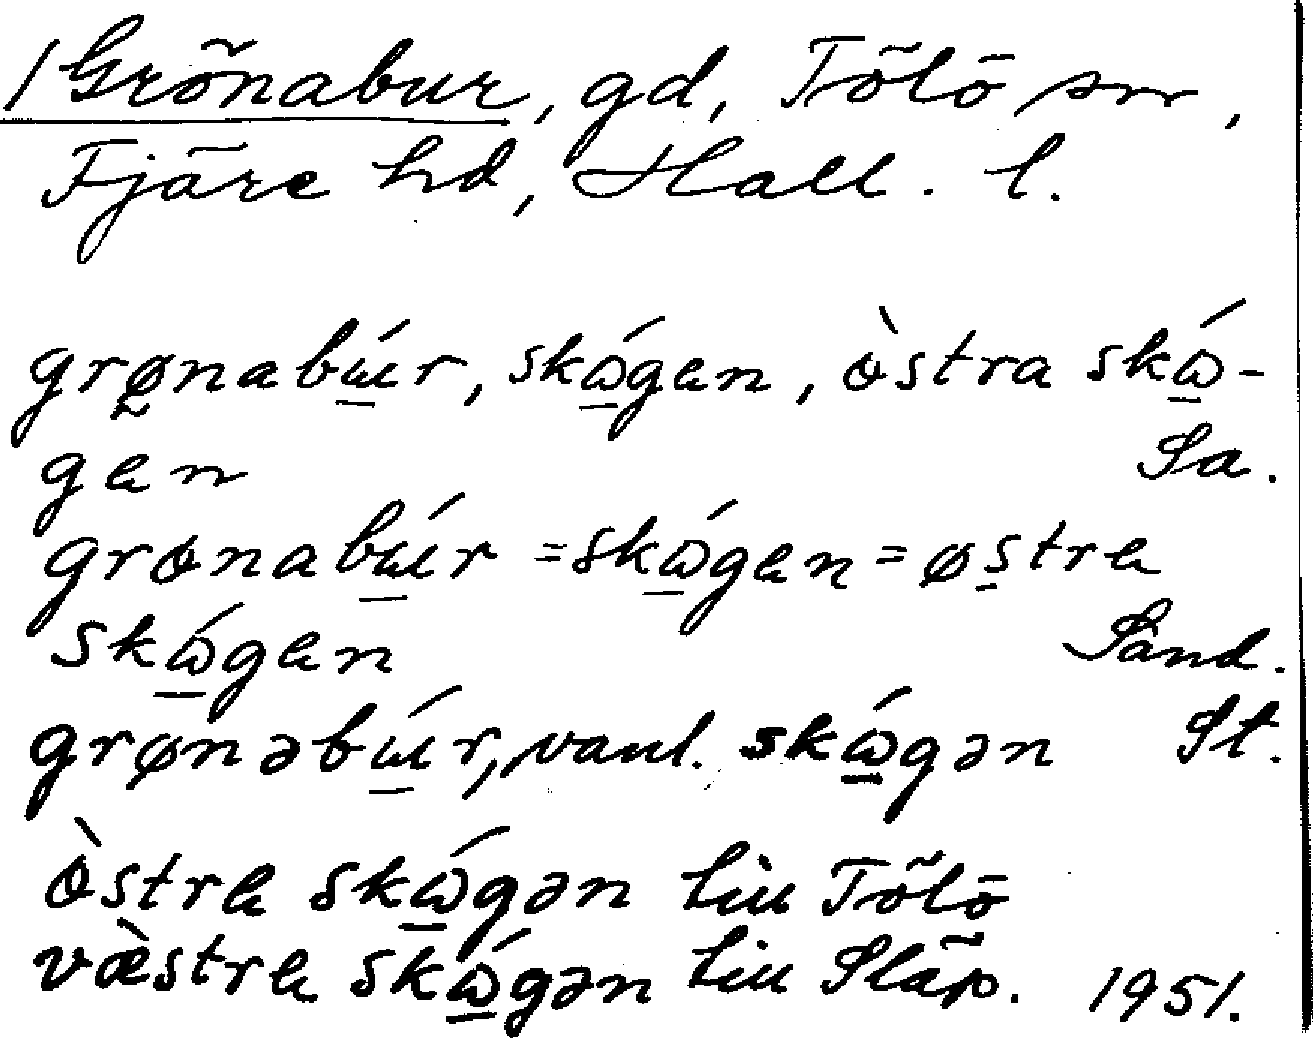 /Grönabur, gd, Tölö sn,
Fjäre hd, Hall. l.
grønabɯ́r, skɷ́gen, òstra skɷ́-
gen Sa.
grønabɯ́r = skɷ́gen = østre
skɷ́gen Sand.
grønəbɯ́r, vanl. skɷ́gən St.
òstre skɷ́gən till Tölö
væ̀stre skɷ́gən till Släp. 1951.